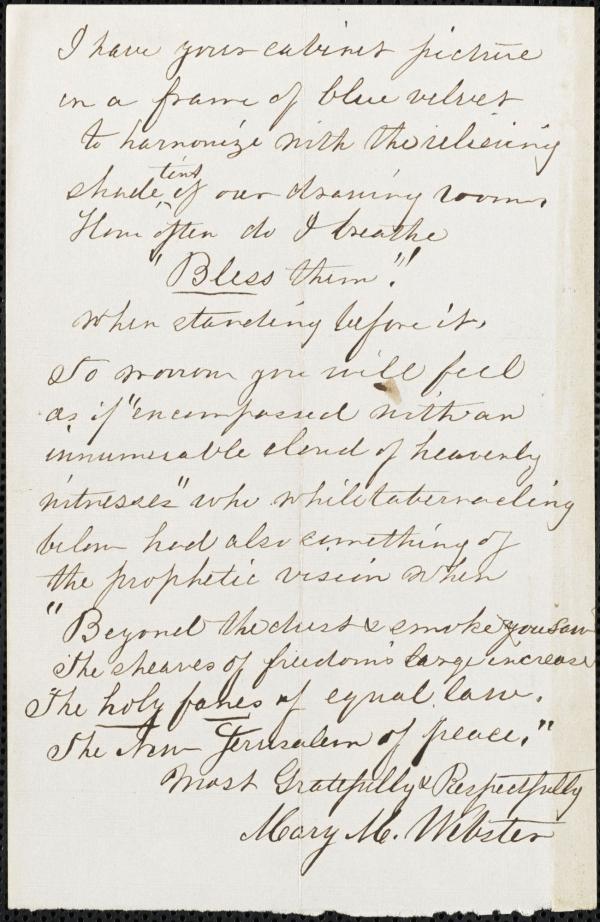 I have your cabinet picture
in a frame of blue velvet
to harmonize with the relieving
shade tint of our drawing rooms.
How often do I breathe
"Bless them"!
when standing before it.
To morrow you will feel
as if "encompassed with an
innumerable cloud of heavenly
witnesses" who while tabernacling
below had also something of
the prophetic vision when
"Beyond the dust & smoke you saw
The sheaves of freedom's large increase
The holy fanes of equal law.
The New Jerusalem of peace."
Most Gratefully & Respectfully
Mary M. Webster